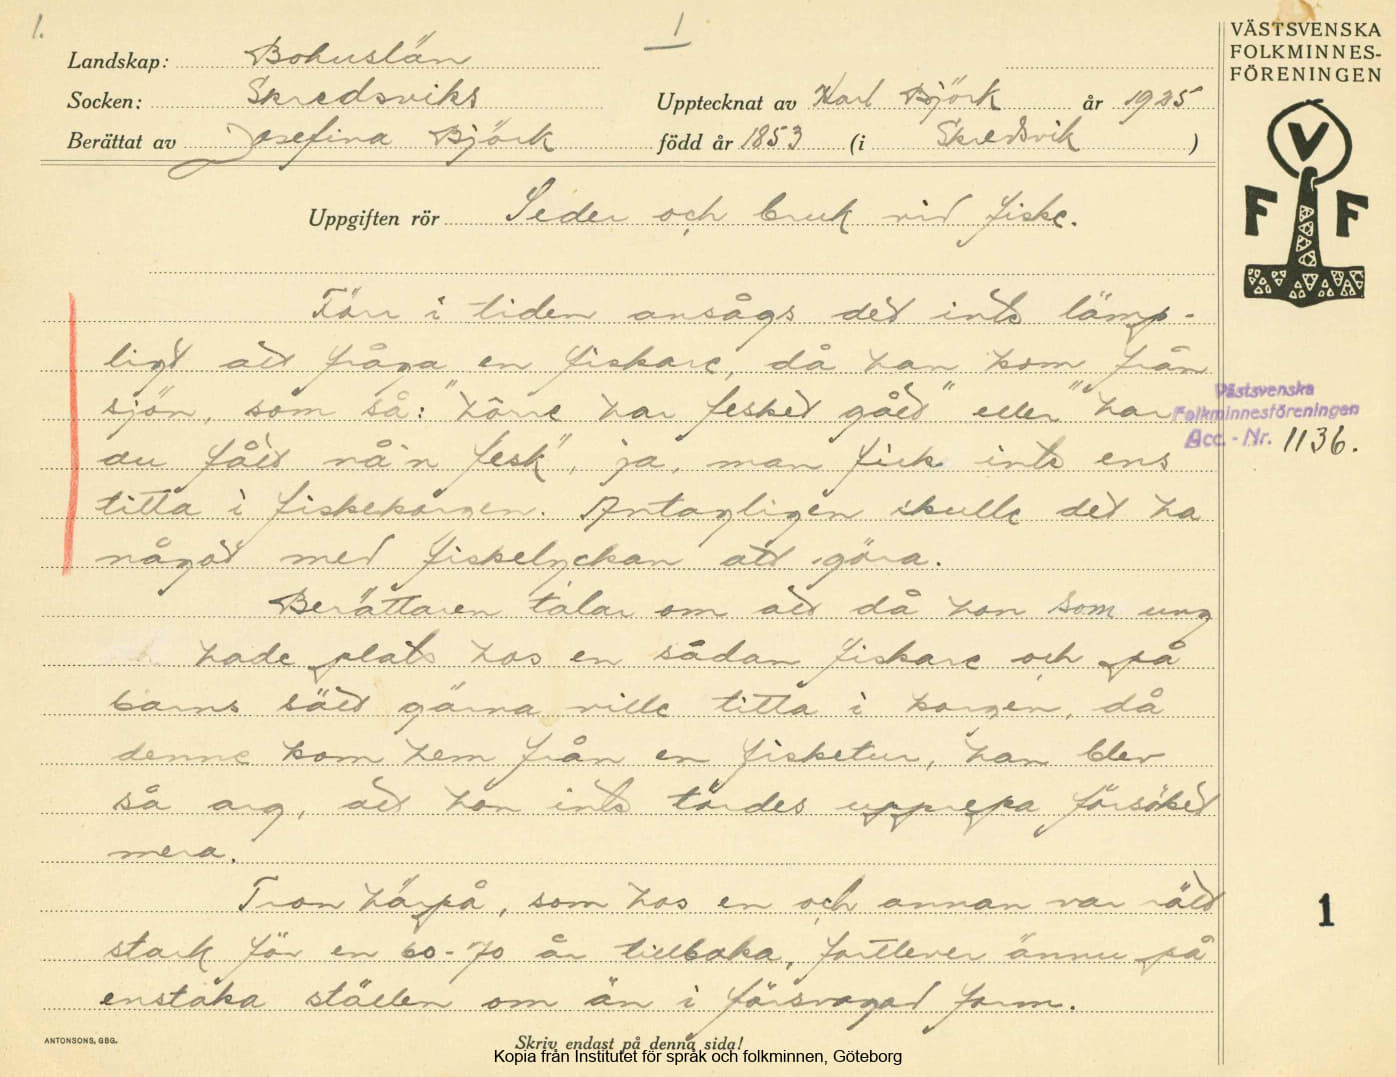 1.
1
VÄSTSVENSKA
FOLKMINNES-
FÖRENINGEN
Landskap: Bohuslän
Socken: Skredsviks Upptecknat av Karl Björk år 1925
Berättat av Josefina Björk född år 1853 (i Skredsvik )
V
F F
Uppgiften rör Seder och bruk vid fiske.
Förr i tiden ansågs det inte lämp-
ligt att fråga en fiskare, då han kom från
sjön, som så: "hörre har fesket gått" eller "har
du fått nå'n fesk", ja, man fick inte ens
titta i fiskekorgen. Antagligen skulle det ha
något med fiskelyckan att göra.
Västsvenska
Folkminnesföreningen
Acc. - Nr. 1136.
Berättaren talar om att då hon som ung
hade plats hos en sådan fiskare och på
barns sätt gärna ville titta i korgen, då
denne kom hem från en fisketur, han blev
så arg, att hon inte tordes upprepa försöket
mera.
Tron härpå, som hos en och annan var rätt
stark för en 60-70 år tillbaka, fortlever ännu på
enstaka ställen om än i försvagad form.
1
ANTONSONS, GBG.
Skriv endast på denna sida!
Kopia från Institutet för språk och folkminnen, Göteborg